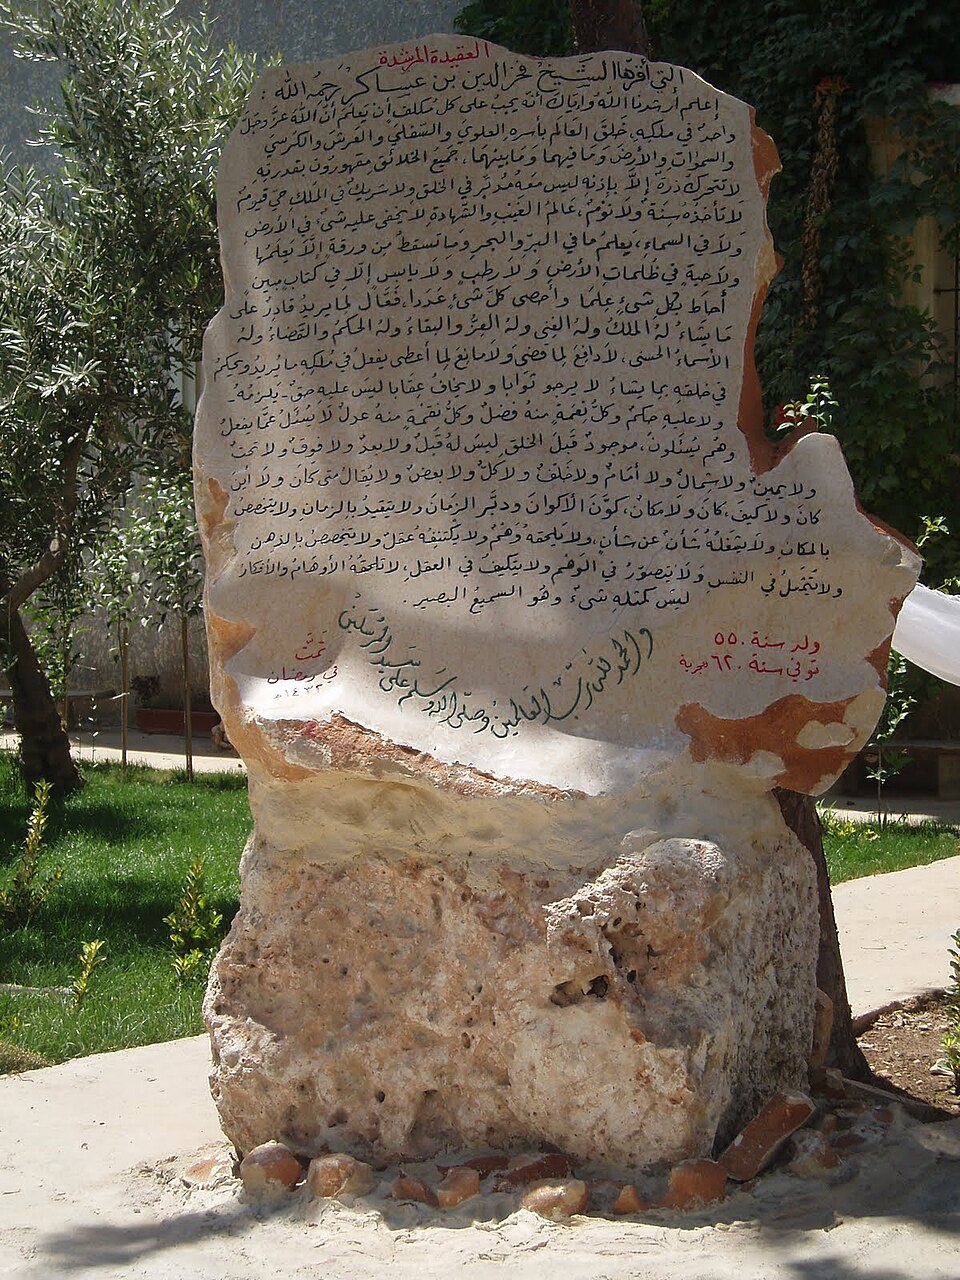 العقيدة المرشدة
التي أقرها الشيخ فخر الدين بن عساكر رحمه الله
إعلم أرشدنا الله وإياك أنه يجب على كل مكلف أن يعلم أن الله عز وجل
واحد في ملكه، خلق العالم بأسره العلوي والسفلي والعرش والكرسي
والسموات والأرض وما فيهما وما بينهما، جميع الخلائق مقهورون بقدرته
لا تتحرك ذرة إلا بإذنه ليس معه مدبر في الخلق ولا شريك في الملك حي قيوم
لا تأخذه سنة ولا نوم، عالم الغيب والشهادة لا يخفى عليه شىء في الأرض
ولا في السماء، يعلم ما في البر والبحر وما تسقط من ورقة إلا يعلمها
ولا حبة في ظلمات الأرض ولا رطب ولا يابس إلا في كتاب مبين
أحاط بكل شىء علما وأحصى كل شىء عددا، فعال لما يريد قادر على
ما يشاء له الملك وله الغنى وله العز والبقاء وله الحكم والقضاء وله
الأسماء الحسنى، لا دافع لما قضى ولا مانع لما أعطى يفعل في ملكه ما يريد ويحكم
في خلقه بما يشاء لا يرجو ثوابا ولا يخاف عقابا ليس عليه حق يلزمه
ولا عليه حكم وكل نعمة منه فضل وكل نقمة منه عدل لا يسئل عما يفعل
وهم يسئلون، موجود قبل الخلق ليس له قبل ولا بعد ولا فوق ولا تحت
ولا يمين ولا شمال ولا أمام ولا خلف ولا كل ولا بعض ولا يقال متى كان ولا أين
كان ولا كيف، كان ولا مكان، كون الأكوان ودبر الزمان ولا يتقيد بالزمان ولا يتخصص
بالمكان ولا يشغله شأن عن شأن، ولا يلحقه وهم ولا يكتنفه عقل ولا يتخصص بالذهن
ولا يتمثل في النفس ولا يتصور في الوهم ولا يتكيف في العقل، لا تلحقه الأوهام والأفكار
ليس كمثله شىء وهو السميع البصير.
والحمد لله رب العالمين وصلى الله وسلم على سيد المرسلين
ولد سنة ٥٥٠
توفي سنة ٦٢٠ هجرية
تمت
في رمضان
١٤٣٢هـ